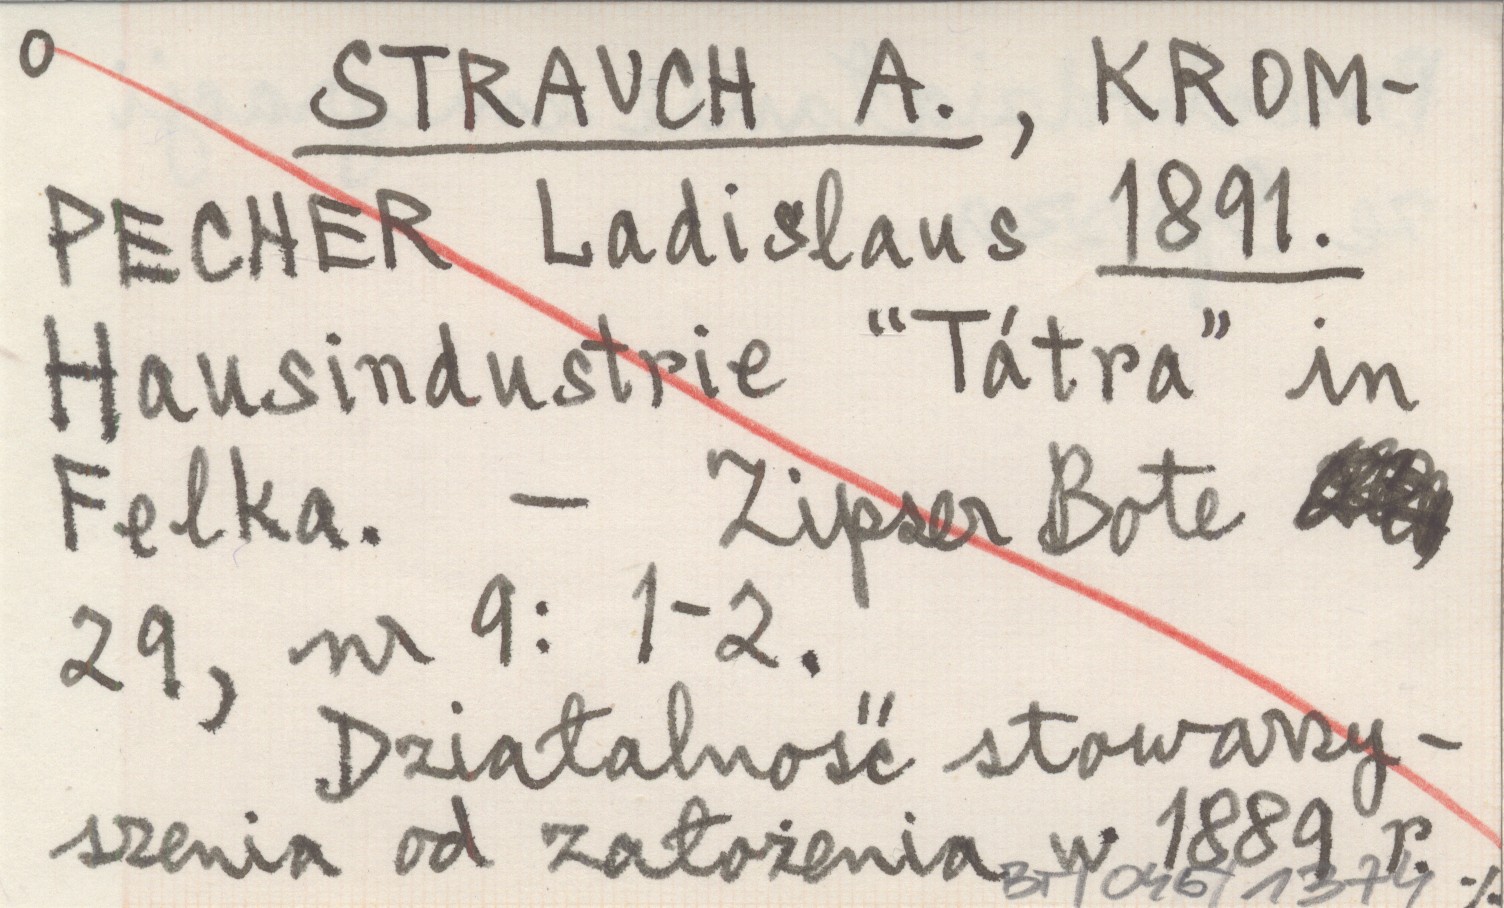 O STRAUCH A., KROM-
PECHER Ladislaus 1891.
Hausindustrie "Tátra" in
Felka. – Zipser Bote
29, nr 9: 1-2.
Działalność stowarzy-
szenia od założenia w 1889 r.
BTI 045/1374 ·/.